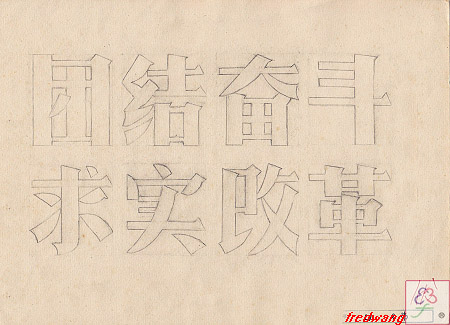 团结奋斗
求实改革
fredwang